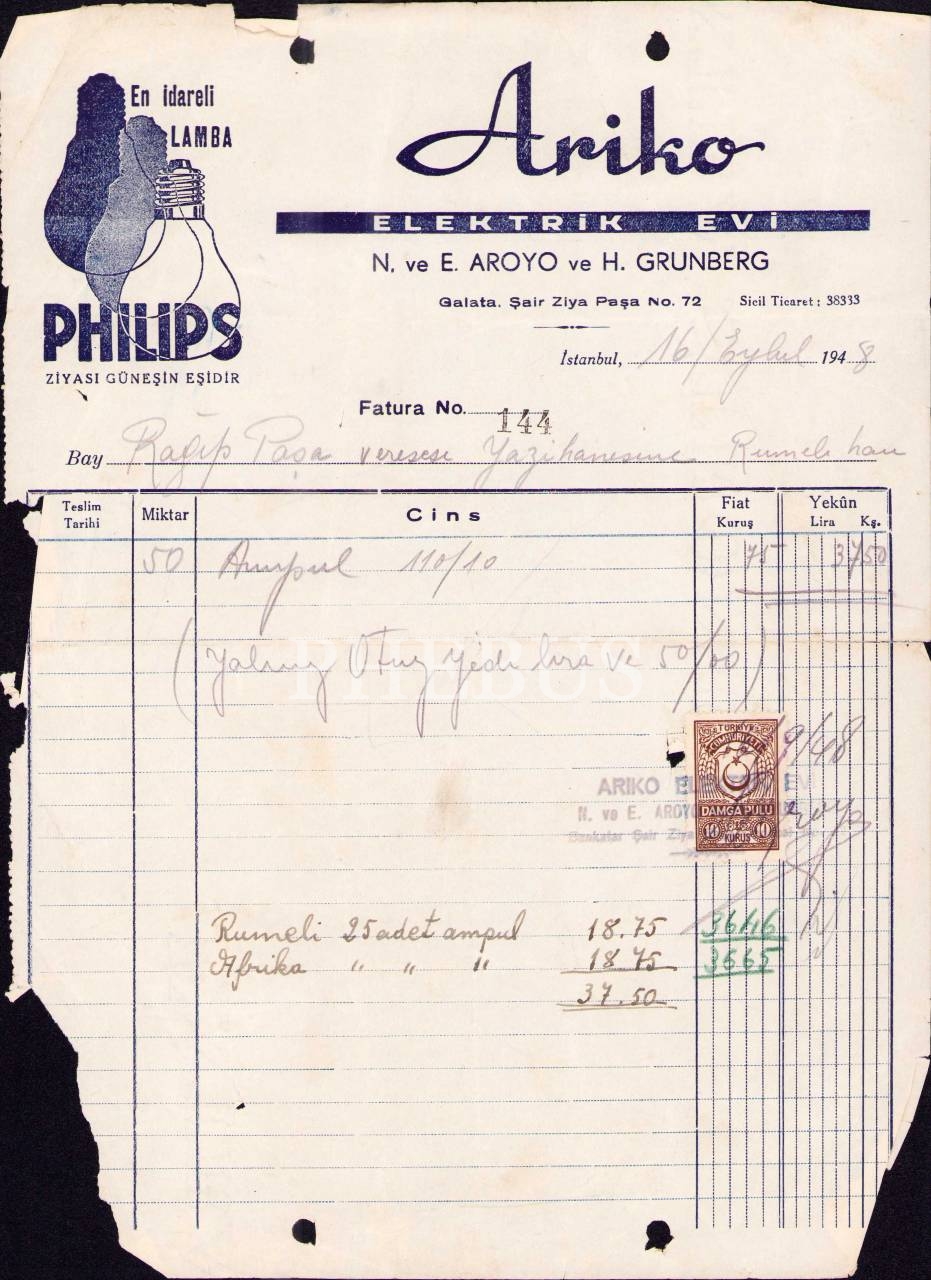 En idareli
LAMBA
PHILIPS
ZİYASI GÜNEŞİN EŞİDİR
Ariko
ELEKTRİK EVİ
N. ve E. AROYO ve H. GRUNBERG
Galata. Şair Ziya Paşa No. 72 Sicil Ticaret: 38333
İstanbul, 16/Eylul 1948
Fatura No. 144
Bay Rağıp Paşa veresesi Yazihanesine Rumeli han
Teslim Tarihi Miktar Cins Fiat Kuruş Yekûn Lira Kş.
50 Ampul 110/10 75 37 50
(Yalnız Otuz yedi lira ve 50/00)
PHEBUS
TÜRKİYE
CUMHURİYETİ
DAMGA PULU
10 KURUŞ 10
9/48
ARIKO
N. ve E. AROYO
Şair Ziya
Rumeli 25 adet ampul 18.75 3646
Afrika " " " 18 75 3665
37.50